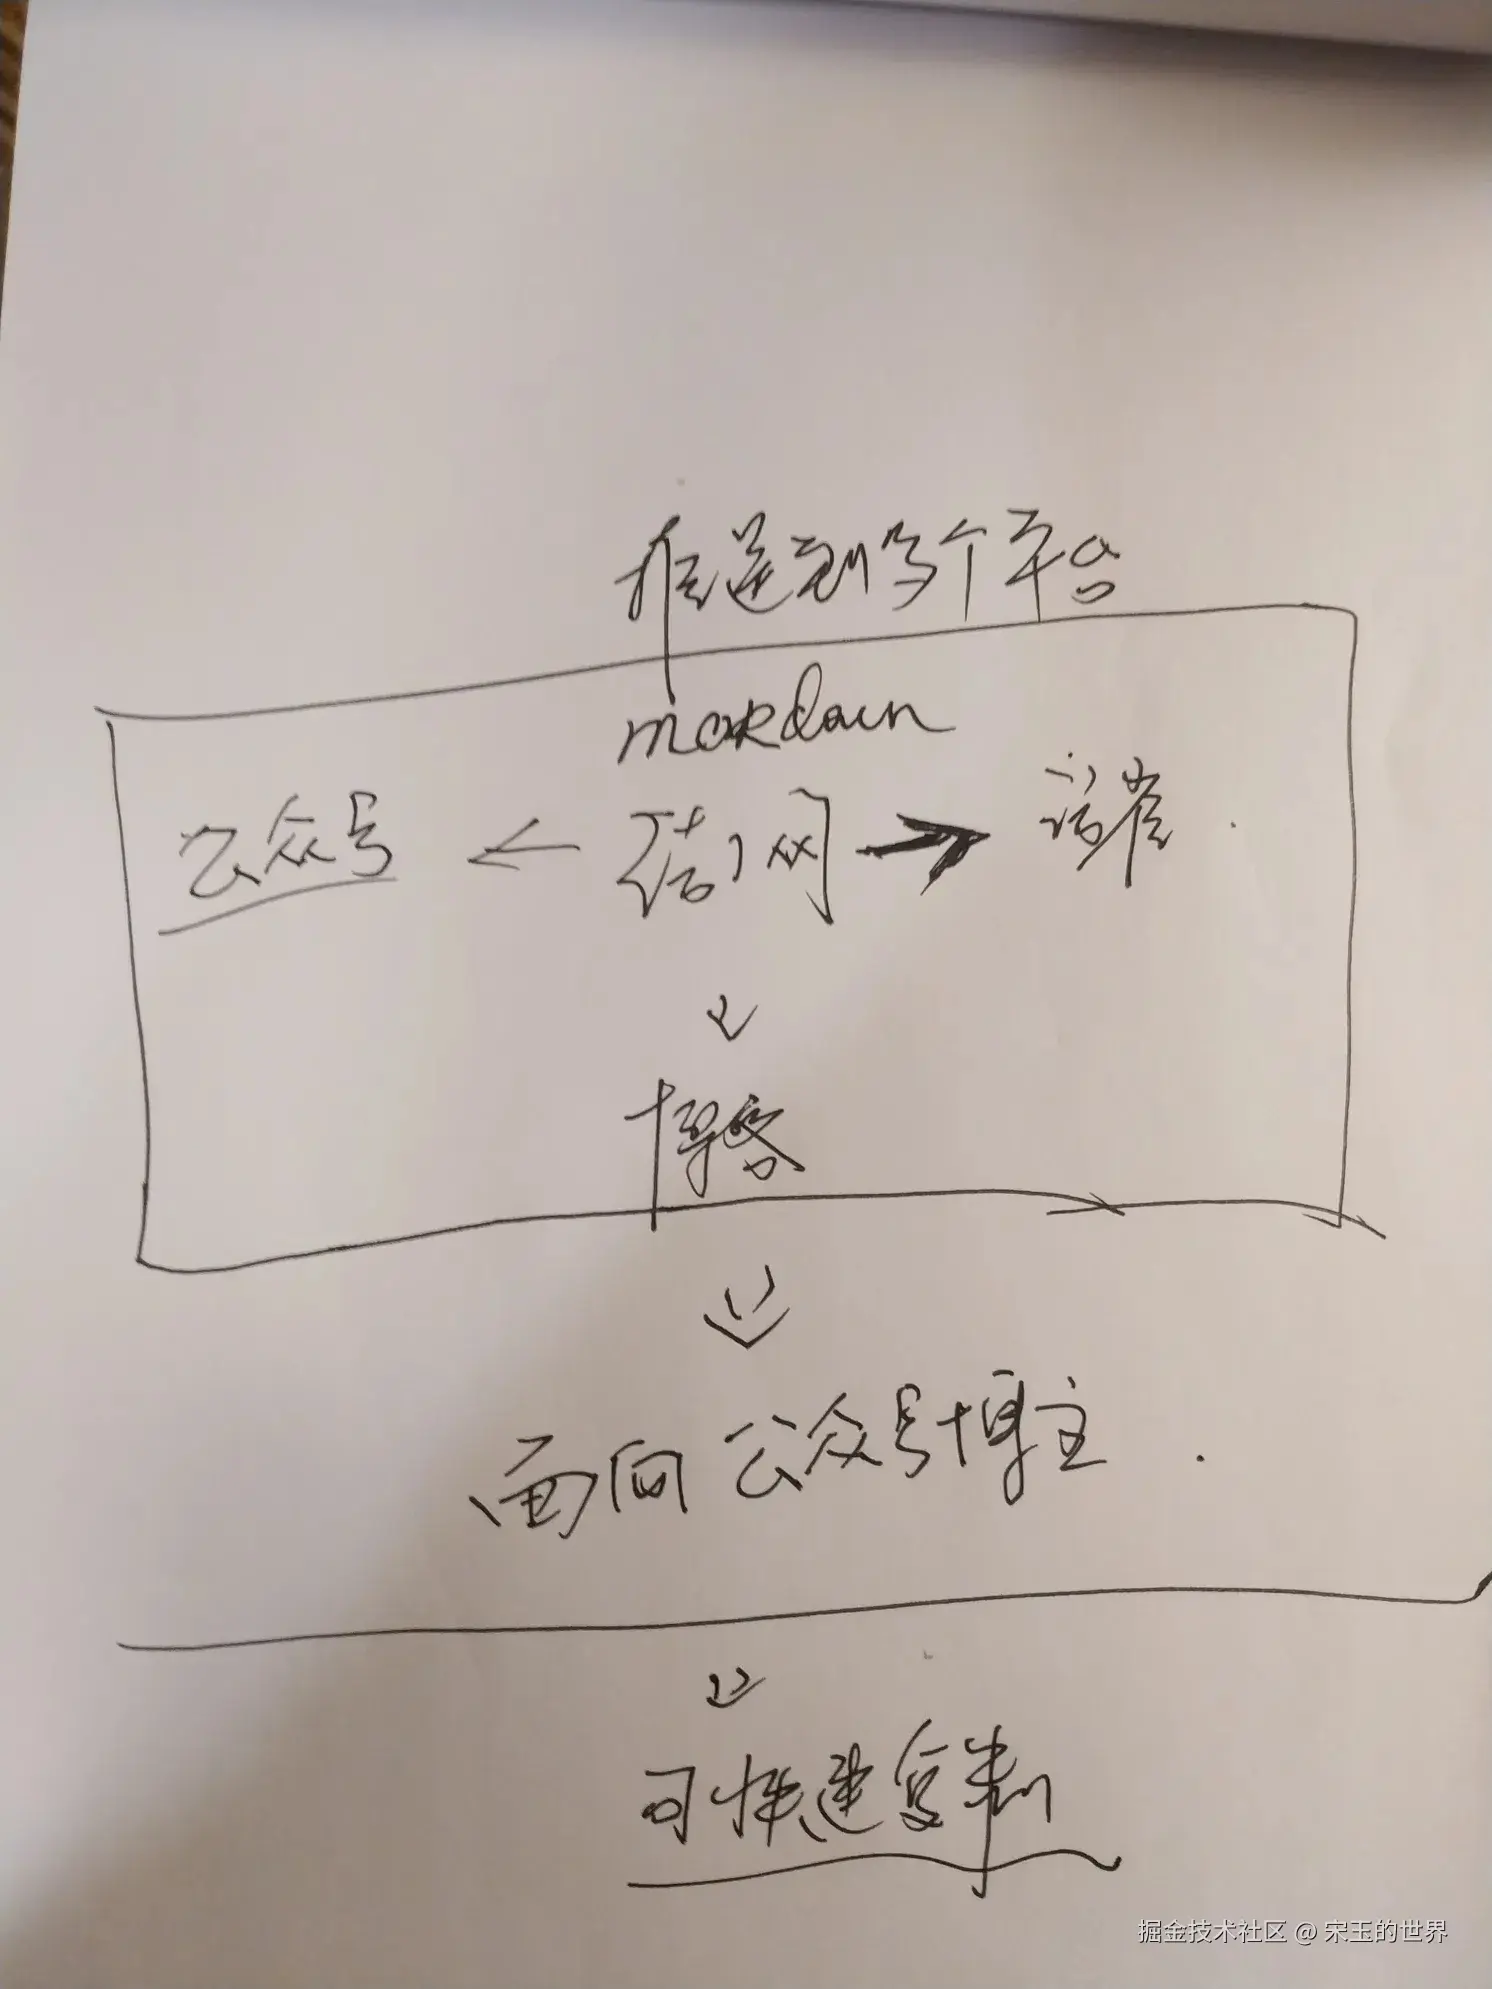 推送到多个平台
mardown
公众号 ← 结网 →
博客
面向公众号博主
可快速复制
掘金技术社区 @ 宋玉的世界